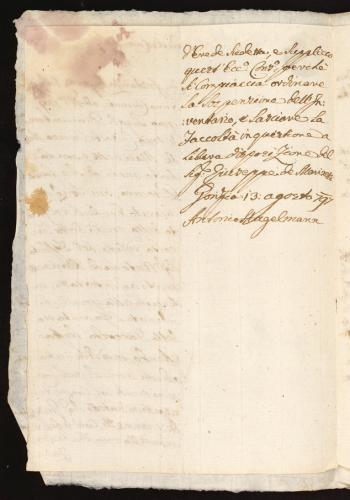 d'Erede Sudetta, e Supplica
quest' Ecc.º Cons.º perchè
si Compiaccia ordinare
la Sospensione dell' In-
ventario, e lasciare la
Facoltà in questione a
libera disposizione del
Sig.r Giuseppe de
13 agosto
Antonio Hagelmann